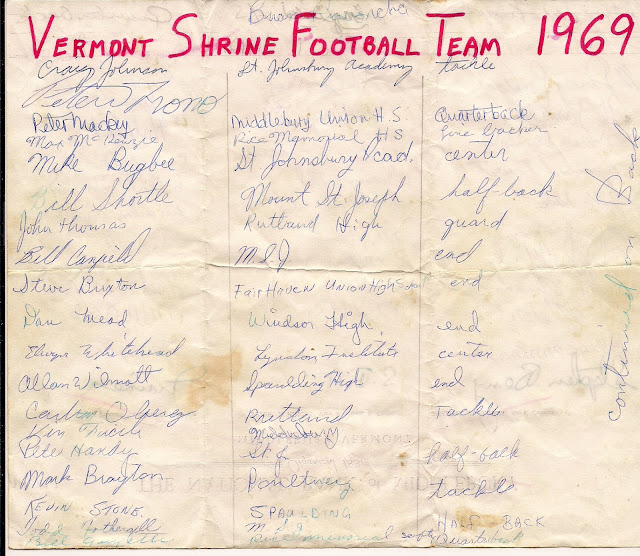 VERMONT SHRINE FOOTBALL TEAM 1969
Craig Johnson St. Johnsbury Academy tackle
Peter
Peter Mackey Middlebury Union H.S. Quarterback
Max McKenzie Rice Memorial HS Line backer
Mike Bugbee St Johnsbury Acad. center
Bill Shortle Mount St. Joseph half-back
John Thomas Rutland High guard
Bill Canfield MSJ end
Steve Buxton FAIR HAVEN UNION High School end
Dan Mead Windsor High, end
Elwyn Whitehead Lyndon Institute center
Allan Wilmott Spaulding High end
Rutland Tackle
Middlebury
Peter Handy St J half-back
Mark Brayton Poultney tackle
KEVIN STONE SPAULDING HALF BACK
Rice Memorial Quarterback
continued on back